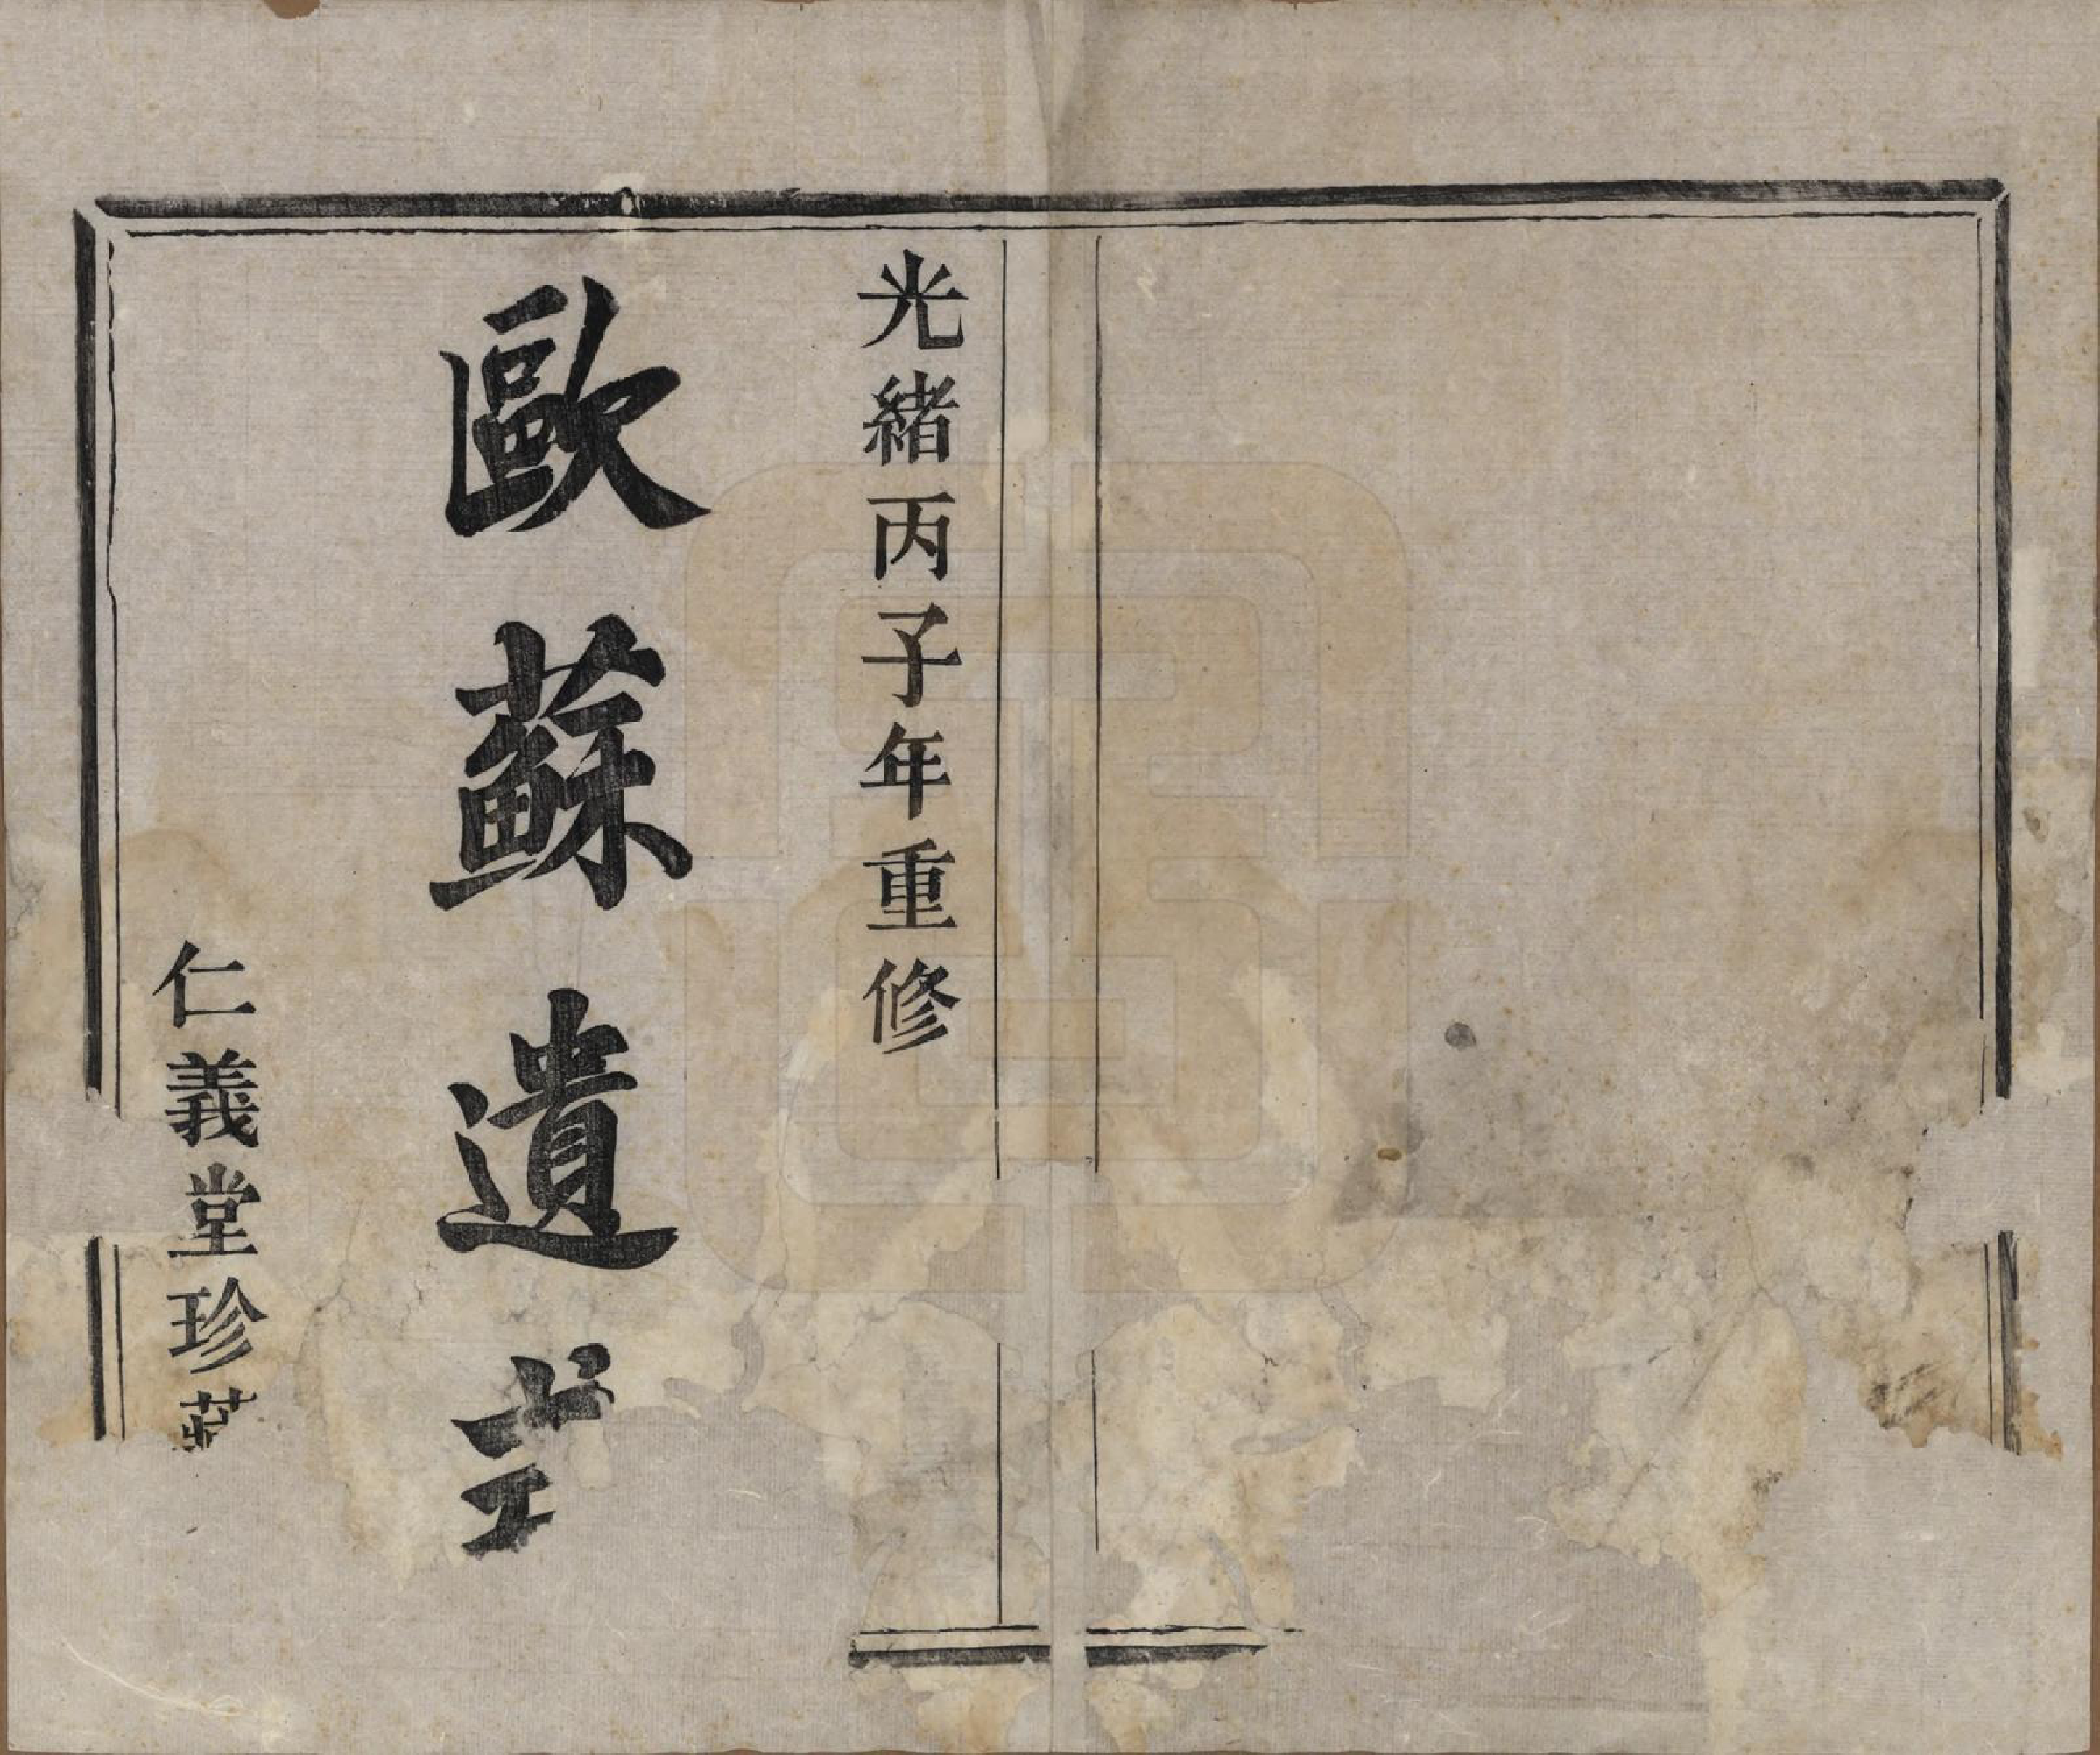 光緒丙子年重修
歐蘇遺
仁義堂珍藏